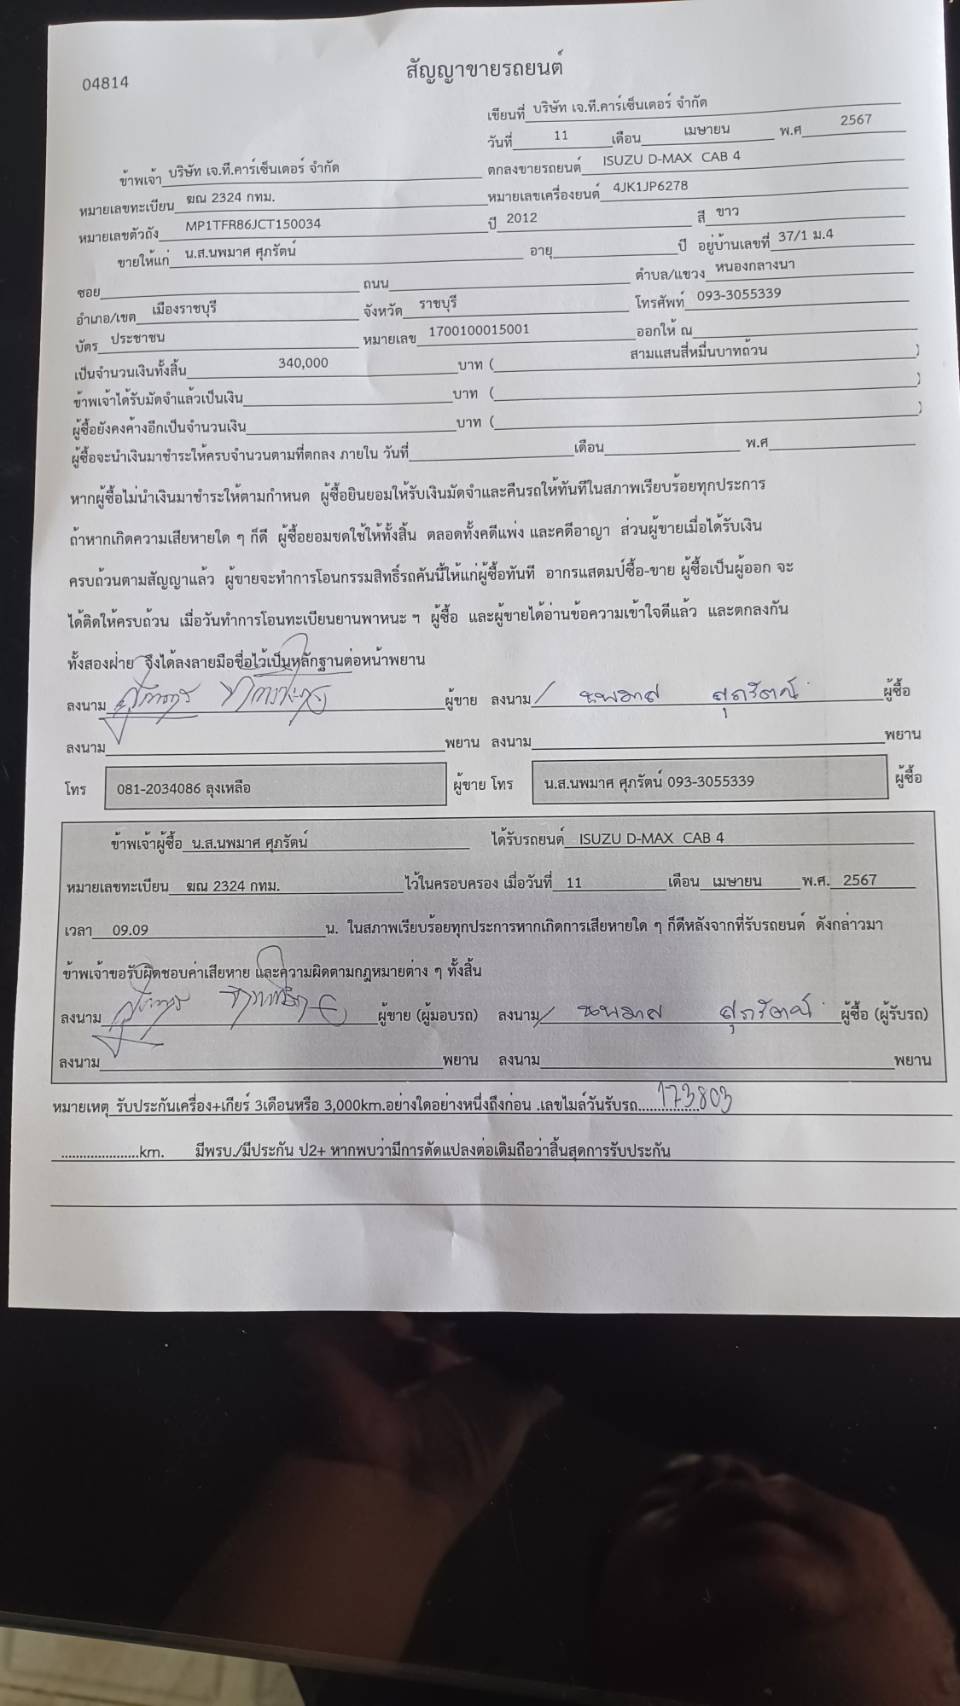 04814
สัญญาขายรถยนต์
เขียนที่ บริษัท เจ.ที.คาร์เซ็นเตอร์ จำกัด
วันที่ 11 เดือน เมษายน พ.ศ 2567
ข้าพเจ้า บริษัท เจ.ที.คาร์เซ็นเตอร์ จำกัด ตกลงขายรถยนต์ ISUZU D-MAX CAB 4
หมายเลขทะเบียน ฆณ 2324 กทม. หมายเลขเครื่องยนต์ 4JK1JP6278
หมายเลขตัวถัง MP1TFR86JCT150034 ปี 2012 สี ขาว
ขายให้แก่ น.ส.นพมาศ ศุภรัตน์ อายุ ปี อยู่บ้านเลขที่ 37/1 ม.4
ซอย ถนน ตำบล/แขวง หนองกลางนา
อำเภอ/เขต เมืองราชบุรี จังหวัด ราชบุรี โทรศัพท์ 093-3055339
บัตร ประชาชน หมายเลข 1700100015001 ออกให้ ณ
เป็นจำนวนเงินทั้งสิ้น 340,000 บาท ( สามแสนสี่หมื่นบาทถ้วน )
ข้าพเจ้าได้รับมัดจำแล้วเป็นเงิน บาท ( )
ผู้ซื้อยังคงค้างอีกเป็นจำนวนเงิน บาท ( )
ผู้ซื้อจะนำเงินมาชำระให้ครบจำนวนตามที่ตกลง ภายใน วันที่ เดือน พ.ศ
หากผู้ซื้อไม่นำเงินมาชำระให้ตามกำหนด ผู้ซื้อยินยอมให้ริบเงินมัดจำและคืนรถให้ทันทีในสภาพเรียบร้อยทุกประการ
ถ้าหากเกิดความเสียหายใด ๆ ก็ดี ผู้ซื้อยอมชดใช้ให้ทั้งสิ้น ตลอดทั้งคดีแพ่ง และคดีอาญา ส่วนผู้ขายเมื่อได้รับเงิน
ครบถ้วนตามสัญญาแล้ว ผู้ขายจะทำการโอนกรรมสิทธิ์รถคันนี้ให้แก่ผู้ซื้อทันที อากรแสตมป์ซื้อ-ขาย ผู้ซื้อเป็นผู้ออก จะ
ได้ติดให้ครบถ้วน เมื่อวันทำการโอนทะเบียนยานพาหนะ ฯ ผู้ซื้อ และผู้ขายได้อ่านข้อความเข้าใจดีแล้ว และตกลงกัน
ทั้งสองฝ่าย จึงได้ลงลายมือชื่อไว้เป็นหลักฐานต่อหน้าพยาน
ลงนาม ผู้ขาย ลงนาม / นพมาศ ศุภรัตน์ ผู้ซื้อ
ลงนาม พยาน ลงนาม พยาน
โทร 081-2034086 ลุงเหลือ ผู้ขาย โทร น.ส.นพมาศ ศุภรัตน์ 093-3055339 ผู้ซื้อ
ข้าพเจ้าผู้ซื้อ น.ส.นพมาศ ศุภรัตน์ ได้รับรถยนต์ ISUZU D-MAX CAB 4
หมายเลขทะเบียน ฆณ 2324 กทม. ไว้ในครอบครอง เมื่อวันที่ 11 เดือน เมษายน พ.ศ. 2567
เวลา 09.09 น. ในสภาพเรียบร้อยทุกประการหากเกิดการเสียหายใด ๆ ก็ดีหลังจากที่รับรถยนต์ ดังกล่าวมา
ข้าพเจ้าขอรับผิดชอบค่าเสียหาย และความผิดตามกฎหมายต่าง ๆ ทั้งสิ้น
ลงนาม ผู้ขาย (ผู้มอบรถ) ลงนาม / นพมาศ ศุภรัตน์ ผู้ซื้อ (ผู้รับรถ)
ลงนาม พยาน ลงนาม พยาน
หมายเหตุ รับประกันเครื่อง+เกียร์ 3เดือนหรือ 3,000km.อย่างใดอย่างหนึ่งถึงก่อน .เลขไมล์วันรับรถ................173803
......................km. มีพรบ./มีประกัน ป2+ หากพบว่ามีการดัดแปลงต่อเติมถือว่าสิ้นสุดการรับประกัน